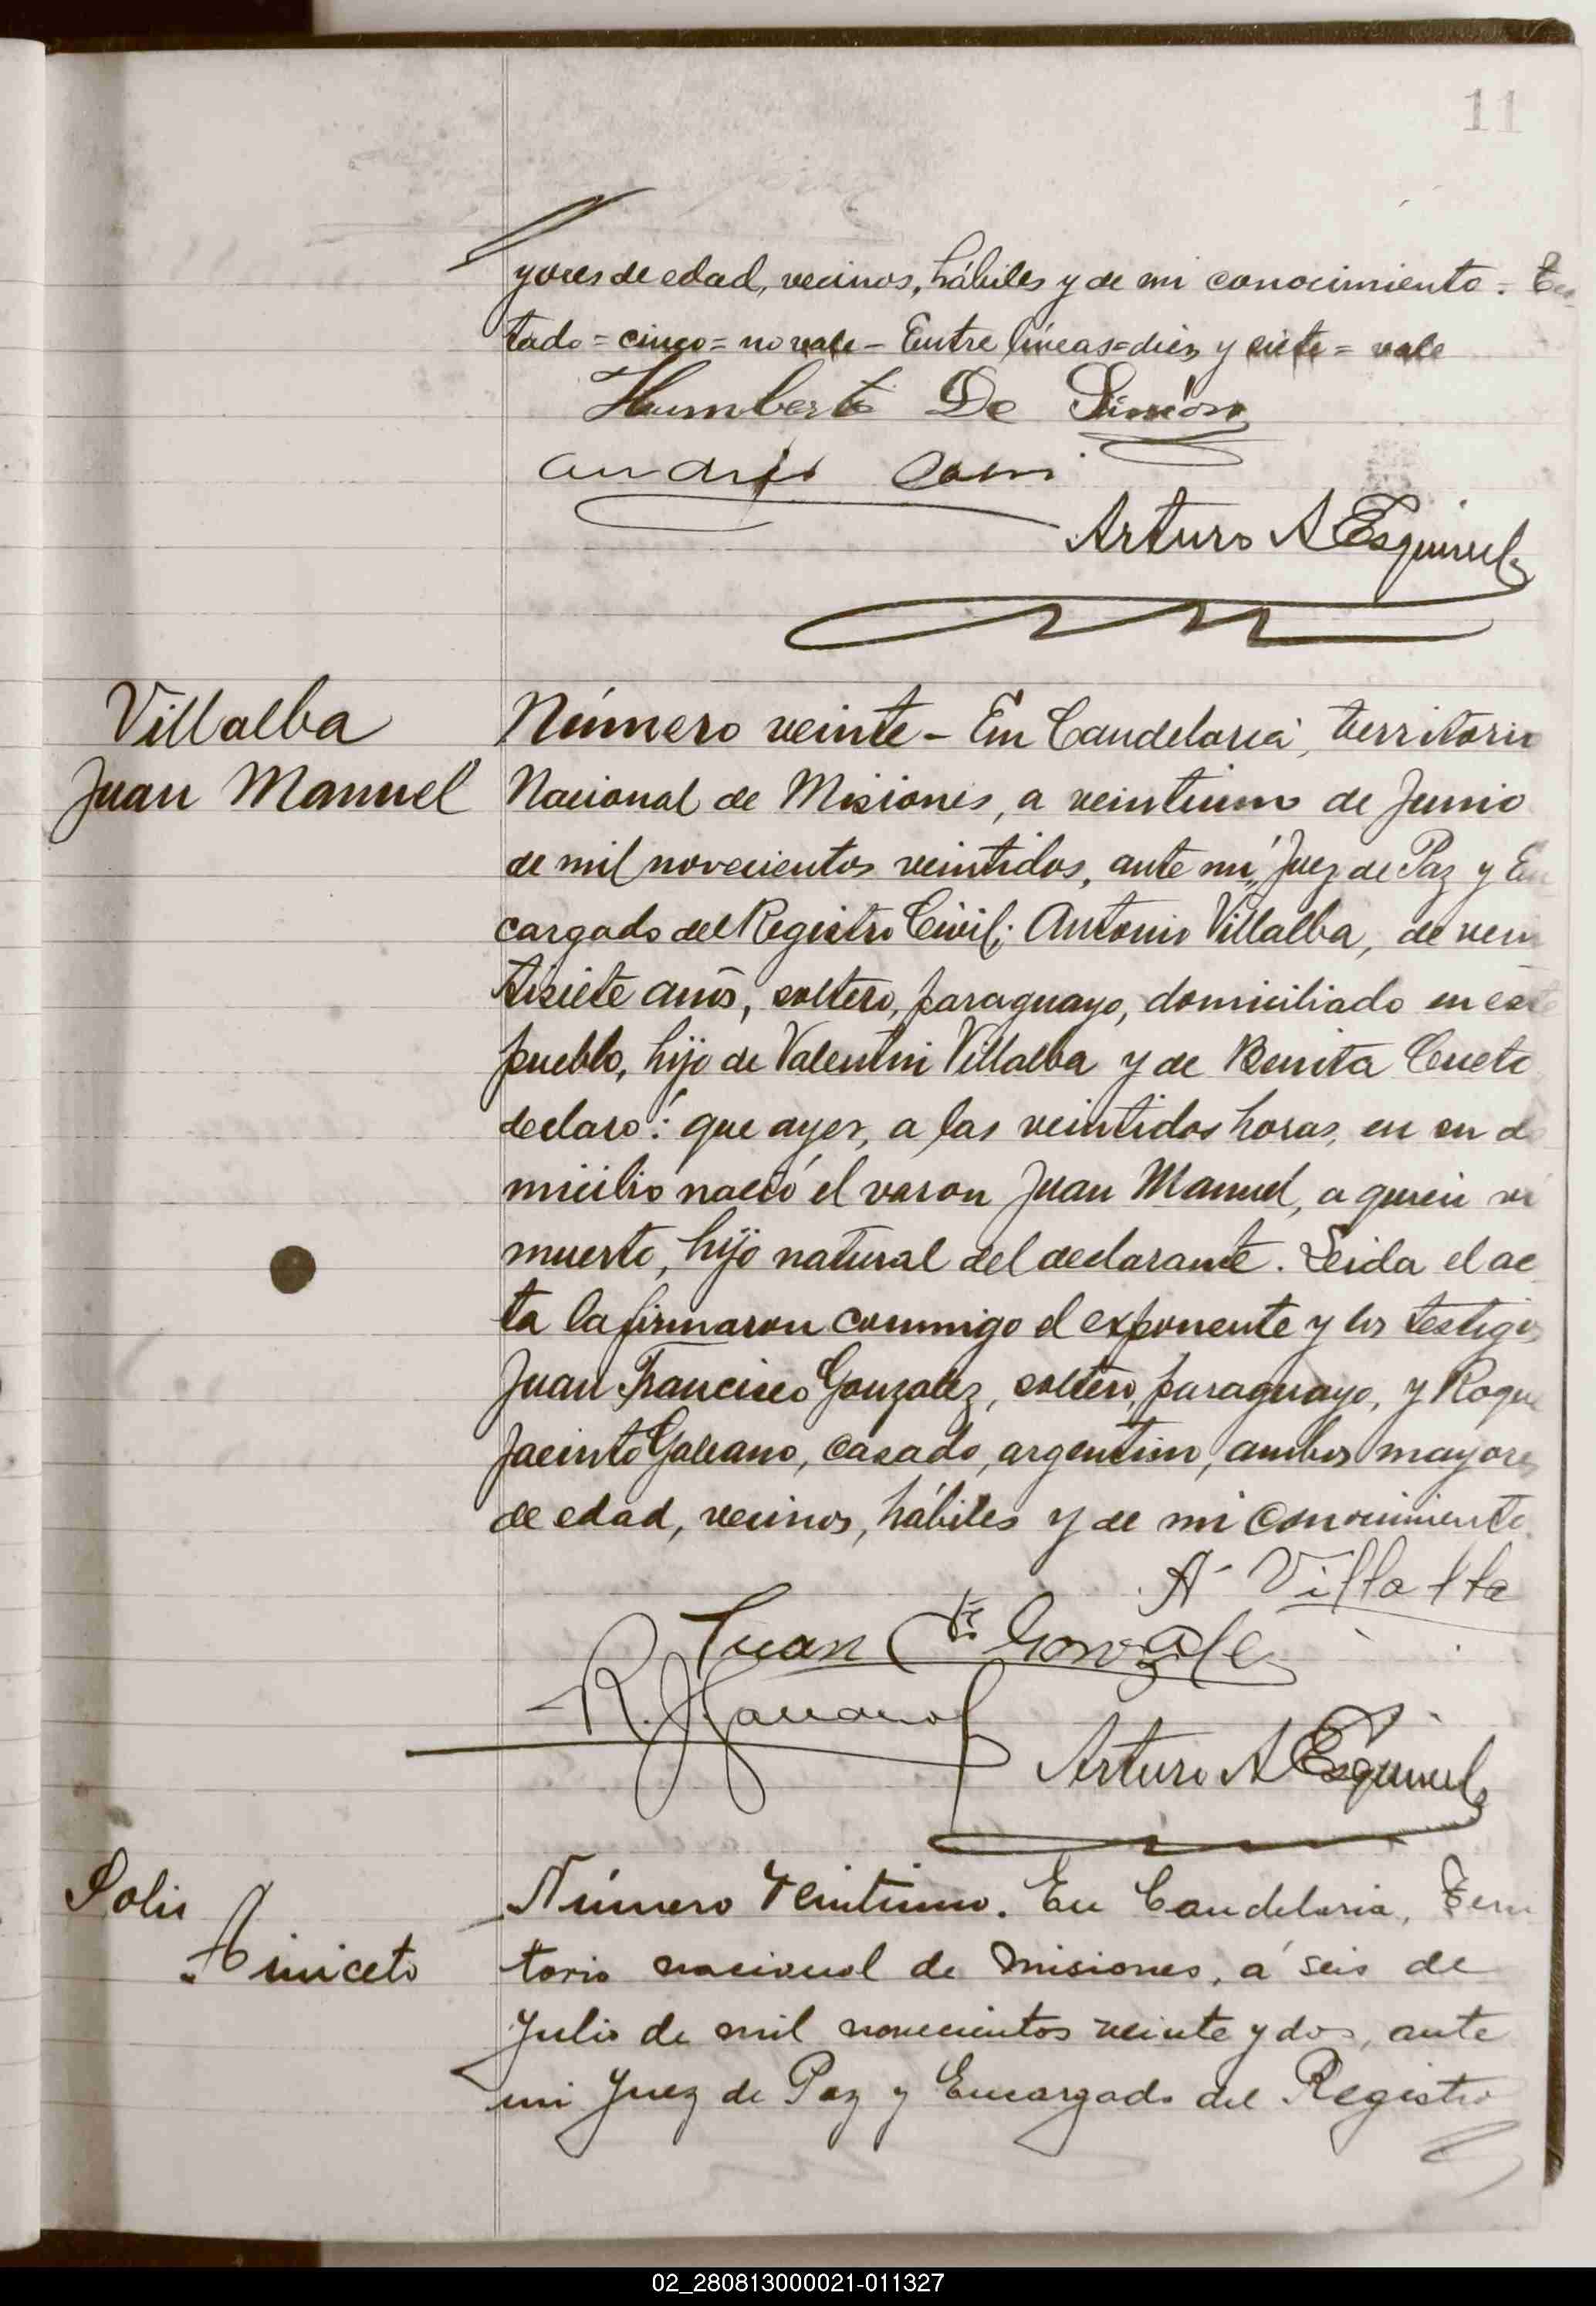 11
yores de edad, vecinos, hábiles y de mi conocimiento = Tes
tado = cinco = no vale - Entre líneas = diez y siete = vale
Humberto De Simón
Andrés
Arturo A Esquivel
Villalba
Juan Manuel
Número veinte - En Candelaria, territorio
Nacional de Misiones, a veintiuno de Junio
de mil novecientos veintidos, ante mí, Juez de Paz y En
cargado del Registro Civil; Antonio Villalba, de vein
tisiete años, soltero, paraguayo, domiciliado en este
pueblo, hijo de Valentin Villalba y de Benita Cueto
declaró: que ayer, a las veintidos horas, en su do
micilio nació el varon Juan Manuel, a quien vi
muerto, hijo natural del declarante. Leida el ac
ta la firmaron conmigo el exponente y los testigos
Juan Francisco Gonzalez, soltero, paraguayo, y Roque
Jacinto Galeano, casado, argentino, ambos mayores
de edad, vecinos, hábiles y de mi conocimiento.
A Villalba
Juan F. Gonzalez
R. J. Galeano
Arturo A Esquivel
Solis
Aniceto
Número Veintiuno. En Candelaria, Terri
torio nacional de Misiones, á seis de
Julio de mil novecientos veinte y dos, ante
mi Juez de Paz y Encargado del Registro
02_280813000021-011327